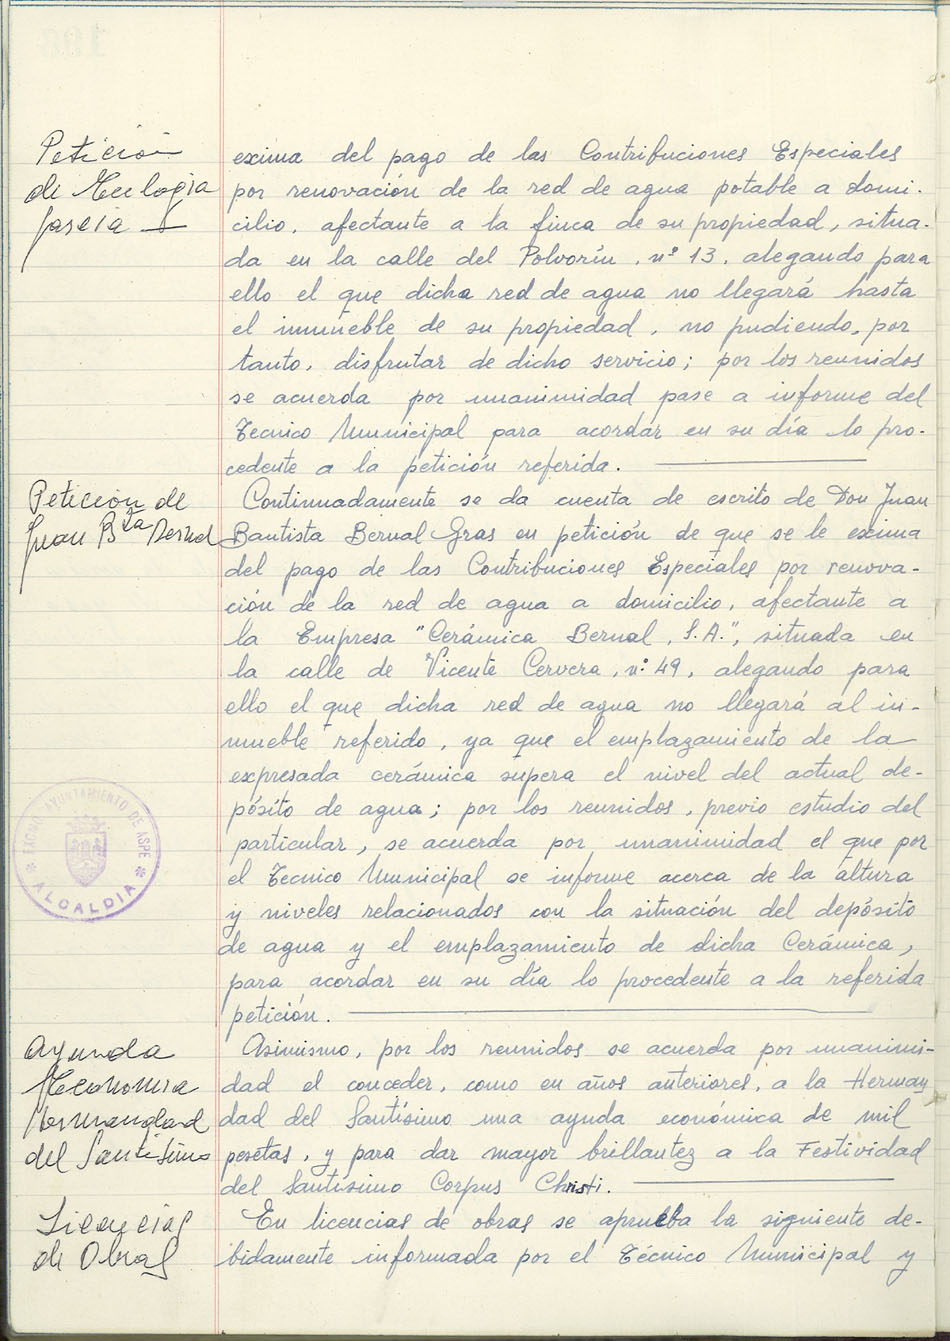 Petición
de Eulogia
García
exima del pago de las Contribuciones Especiales
por renovación de la red de agua potable a domi-
cilio, afectante a la finca de su propiedad, situa-
da en la calle del Polvorín, nº 13, alegando para
ello el que dicha red de agua no llegará hasta
el inmueble de su propiedad, no pudiendo, por
tanto, disfrutar de dicho servicio; por los reunidos
se acuerda por unanimidad pase a informe del
Técnico Municipal para acordar en su día lo pro-
cedente a la petición referida.
Petición de
Juan Bta Bernal
Continuadamente se da cuenta de escrito de Don Juan
Bautista Bernal Gras en petición de que se le exima
del pago de las Contribuciones Especiales por renova-
ción de la red de agua a domicilio, afectante a
la Empresa "Cerámica Bernal, S.A.", situada en
la calle de Vicente Cervera, nº 49, alegando para
ello el que dicha red de agua no llegará al in-
mueble referido, ya que el emplazamiento de la
expresada cerámica supera el nivel del actual de-
pósito de agua; por los reunidos, previo estudio del
particular, se acuerda por unanimidad el que por
el Técnico Municipal se informe acerca de la altura
y niveles relacionados con la situación del depósito
de agua y el emplazamiento de dicha Cerámica,
para acordar en su día lo procedente a la referida
petición.
EXCMO. AYUNTAMIENTO DE ASPE
ALCALDIA
Ayuda
Economica
Hermandad
del Santisimo
Asimismo, por los reunidos se acuerda por unanimi-
dad el conceder, como en años anteriores, a la Herman
dad del Santísimo una ayuda económica de mil
pesetas, y para dar mayor brillantez a la Festividad
del Santísimo Corpus Christi.
Licencias
de Obras
En licencias de obras se aprueba la siguiente de-
bidamente informada por el Técnico Municipal y